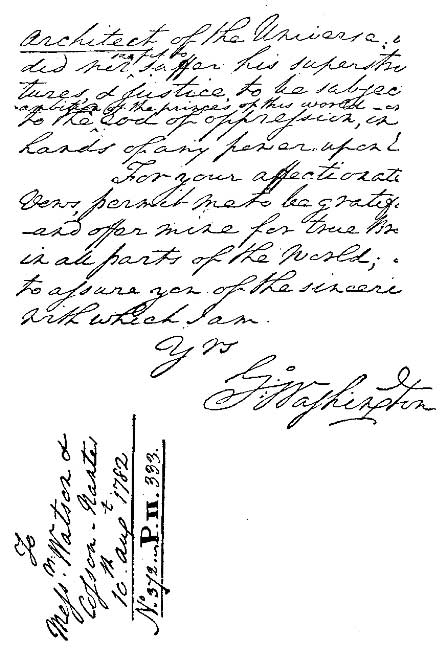 Architect of the Universe;
did not suffer his superstru
tures, & justice, to be subjec
ambition of the princes of this world
to the rod of oppression, in
hands of any power upon
For your affectionate
Vows, permit me to be grateful
and offer mine for true Br
in all parts of the World;
to assure you of the sinceri
with which I am.
Yrs
Go. Washington
To
Messrs. Watson &
Cosson - Nantes
10th augt 1782
No. 372. P. II. 333.